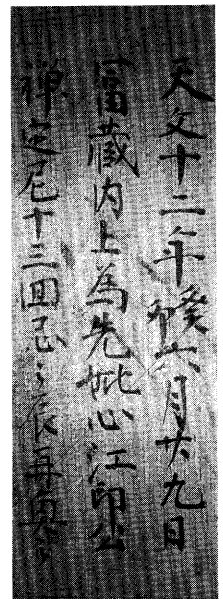 天文十二年癸卯六月廿九日
冨蔵内上為先妣心江印公
禅定尼十三回忌之辰再興之